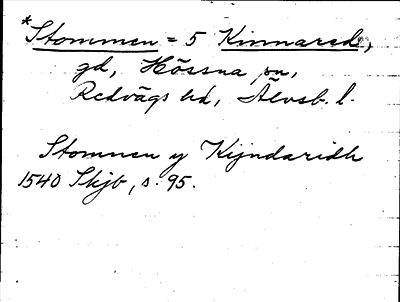 *Stommen = 5 Kinnared,
gd, Hössna sn,
Redvägs hd, Älvsb. l.
Stomnen y Kijndaridh
1540 Skjb, s. 95.